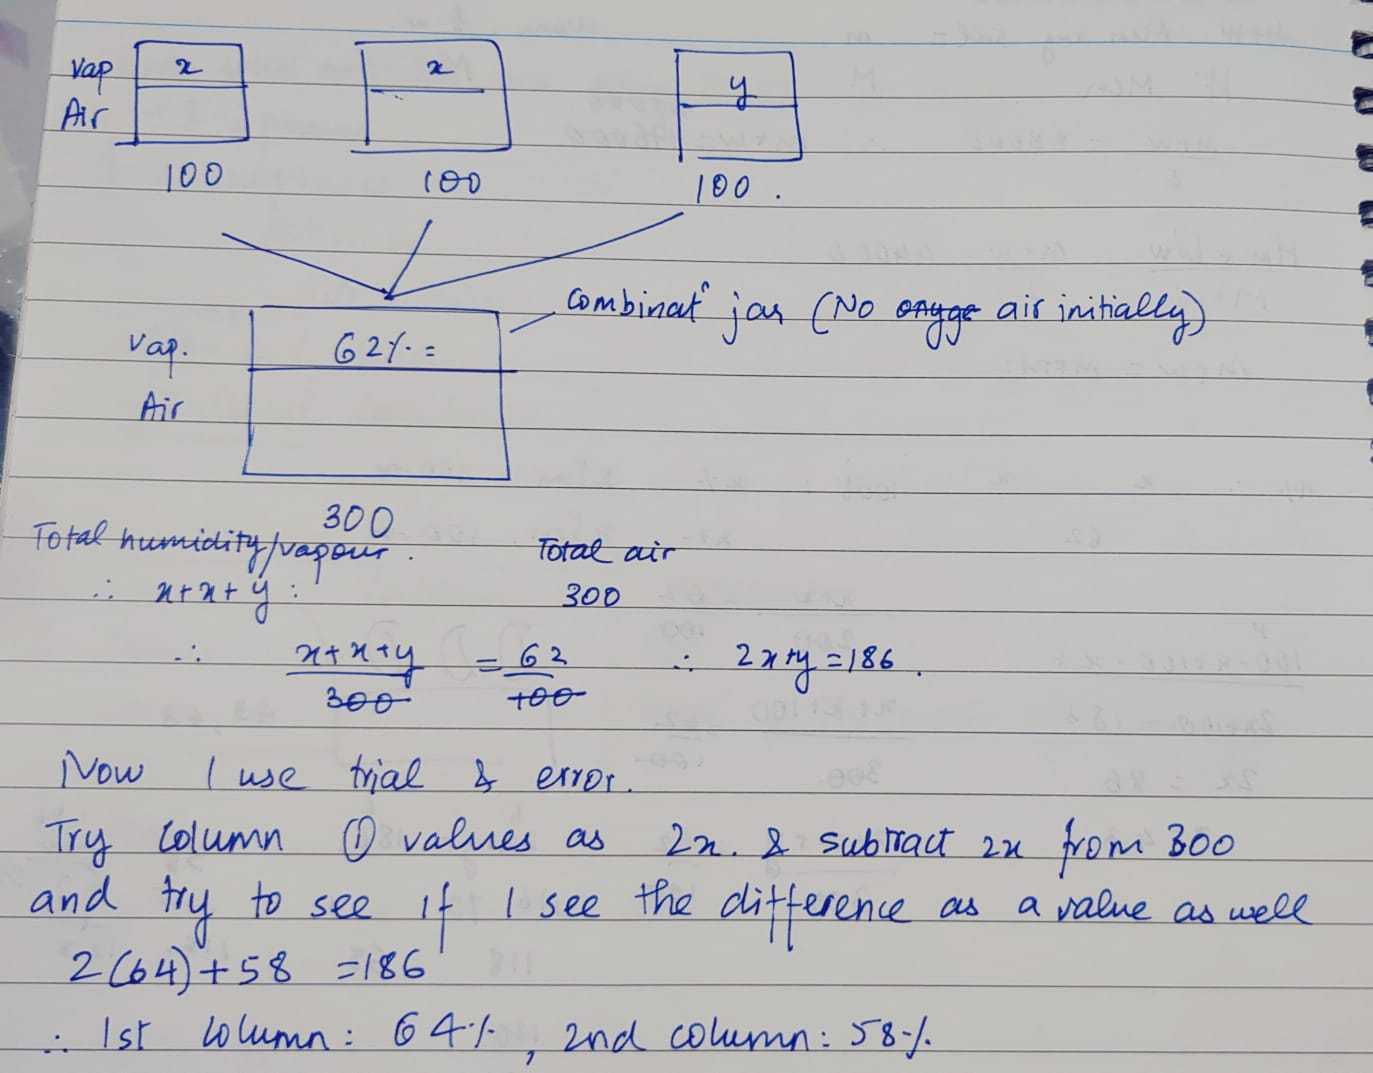 vap x x y
Air
100 100 100 .
Combinatⁿ jar (No onyge air initially)
Vap. 62% =
Air
300
Total humidity/vapour . Total air
∴ x+x+y : 300
∴ x+x+y/300 = 62/100 ∴ 2x+y=186 .
Now I use trial & error.
Try column ① values as 2x. & subtract 2x from 300
and try to see if I see the difference as a value as well
2(64)+58 =186
∴ 1st column: 64%, 2nd column: 58%.